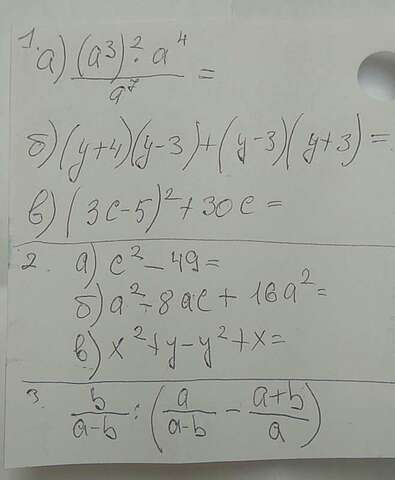 1. а) (a³)² · a⁴ / a⁷ =
б) (y+4)(y-3)+(y-3)(y+3)=
в) (3c-5)²+30c=
2. а) c²-49=
б) a²-8ac+16a²=
в) x²+y-y²+x=
3. b/(a-b) : (a/(a-b) - (a+b)/a)